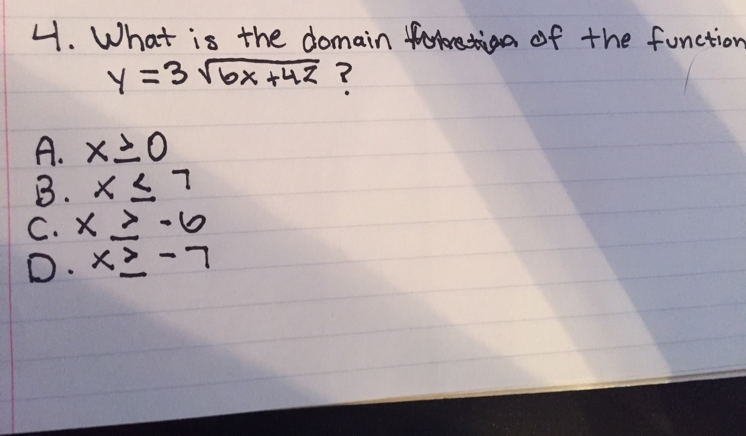 4. What is the domain of the function
y = 3 √6x+42 ?
A. x ≥ 0
B. x ≤ 7
C. x ≥ -6
D. x ≥ -7